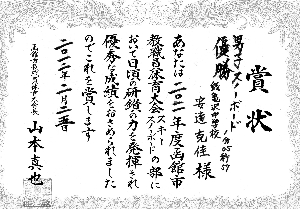 賞状
男子スノーボード 1分05秒57
優勝 銭亀沢中学校
安達克佳 様
あなたは二〇二一年度函館市
教職員体育大会スキー
スノーボードの部に
おいて日頃の研鑽の力を発揮され
優秀な成績をおさめられました
のでこれを賞します
二〇二二年二月二五日
山本真也